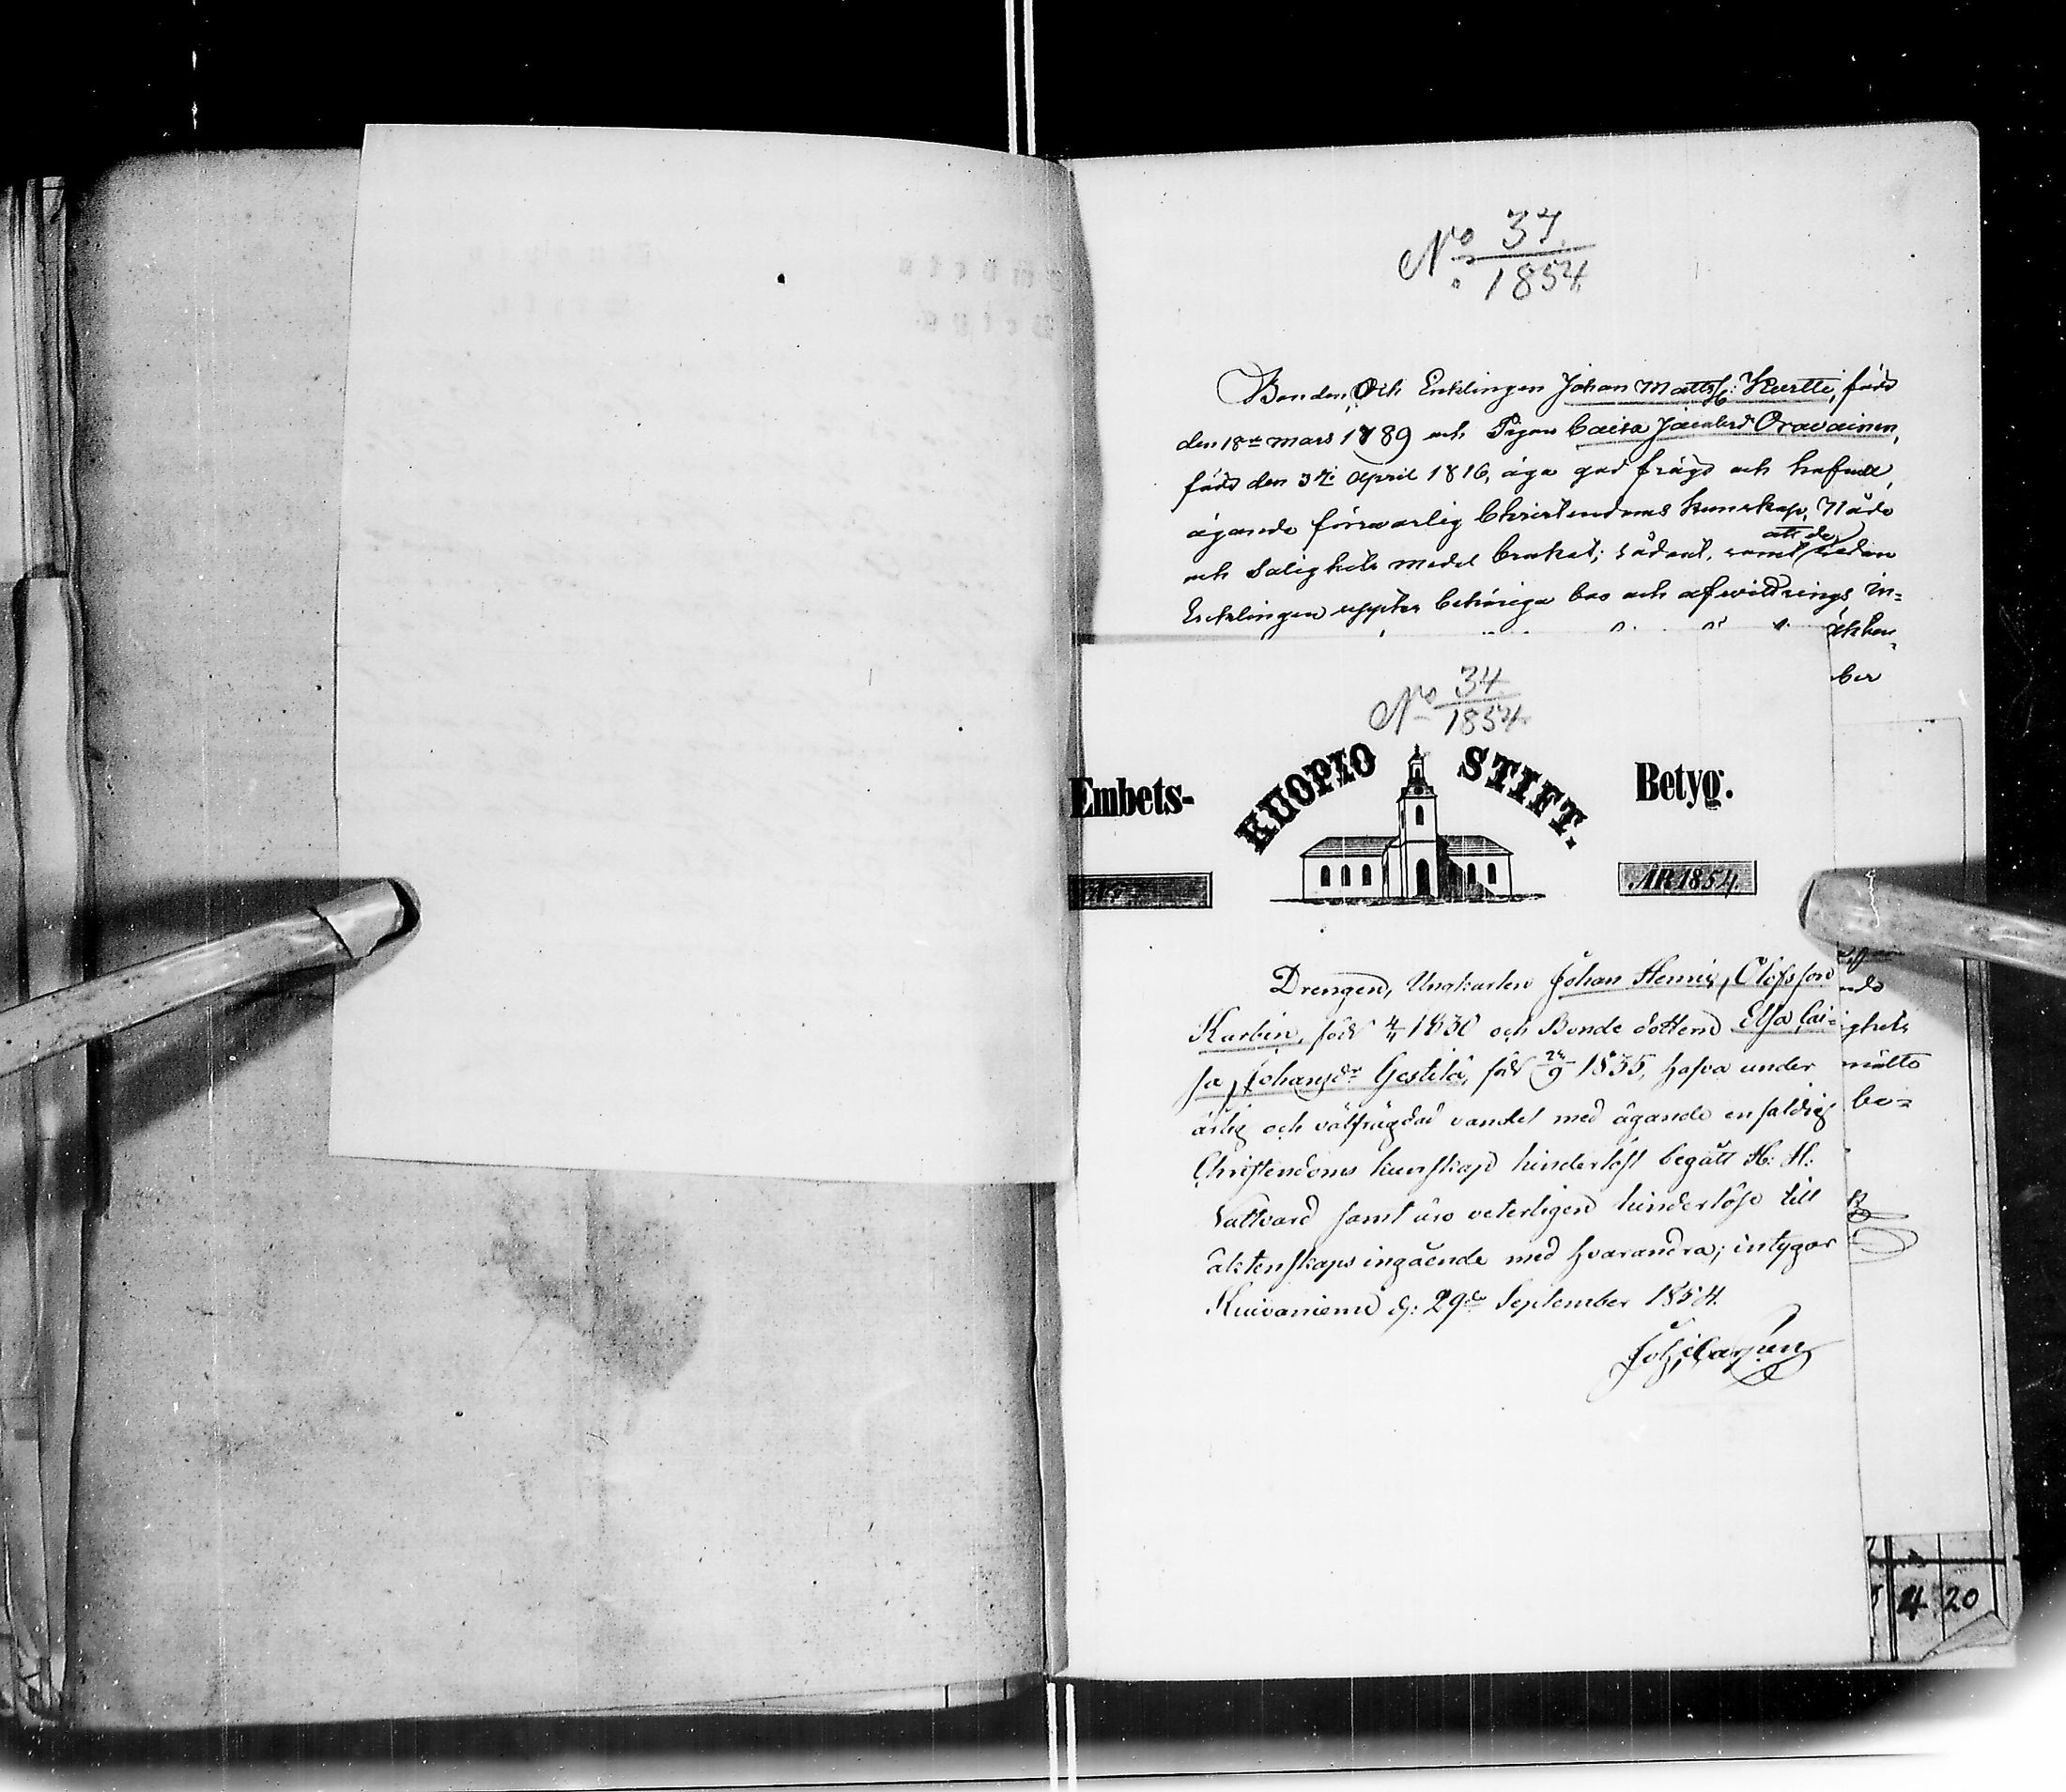 No 37
1854
Bonden, Och Enklingen Johan Matts: Kurtti, född
den 18de mars 1789 och Pigan Caisa Jacobsd Oravainen,
född den 3di April 1816, äga god frägd och hafva,
ägande försvarlig Christendoms kunskap, Nåde
att de
och Salighets medel brukat; sådant, samt sedan
Enklingen upptér behöriga bou och afvittrings in=
ber
No 34
1854
Embets-
KUOPIO STIFT.
Betyg.
No
ÅR 1854.
Drengen, Ungkarlen Johan Henric Olofsson
Karbin, född 4/4 1830 och Bonde dottern Elsa Cai=
sa Johansdr Gestilä, född 24/9 1835, hafva under
ärlig och välfrägdad vandel med ägande enfaldig
Christendoms kunskap hinderlöst begått H: H:
Nattvard samt äro veterligen hinderlöse till
äktenskaps ingående med hvarandra; intygar
Kuivaniemi d: 29de September 1854.
ighets
mätto
be=
4 20